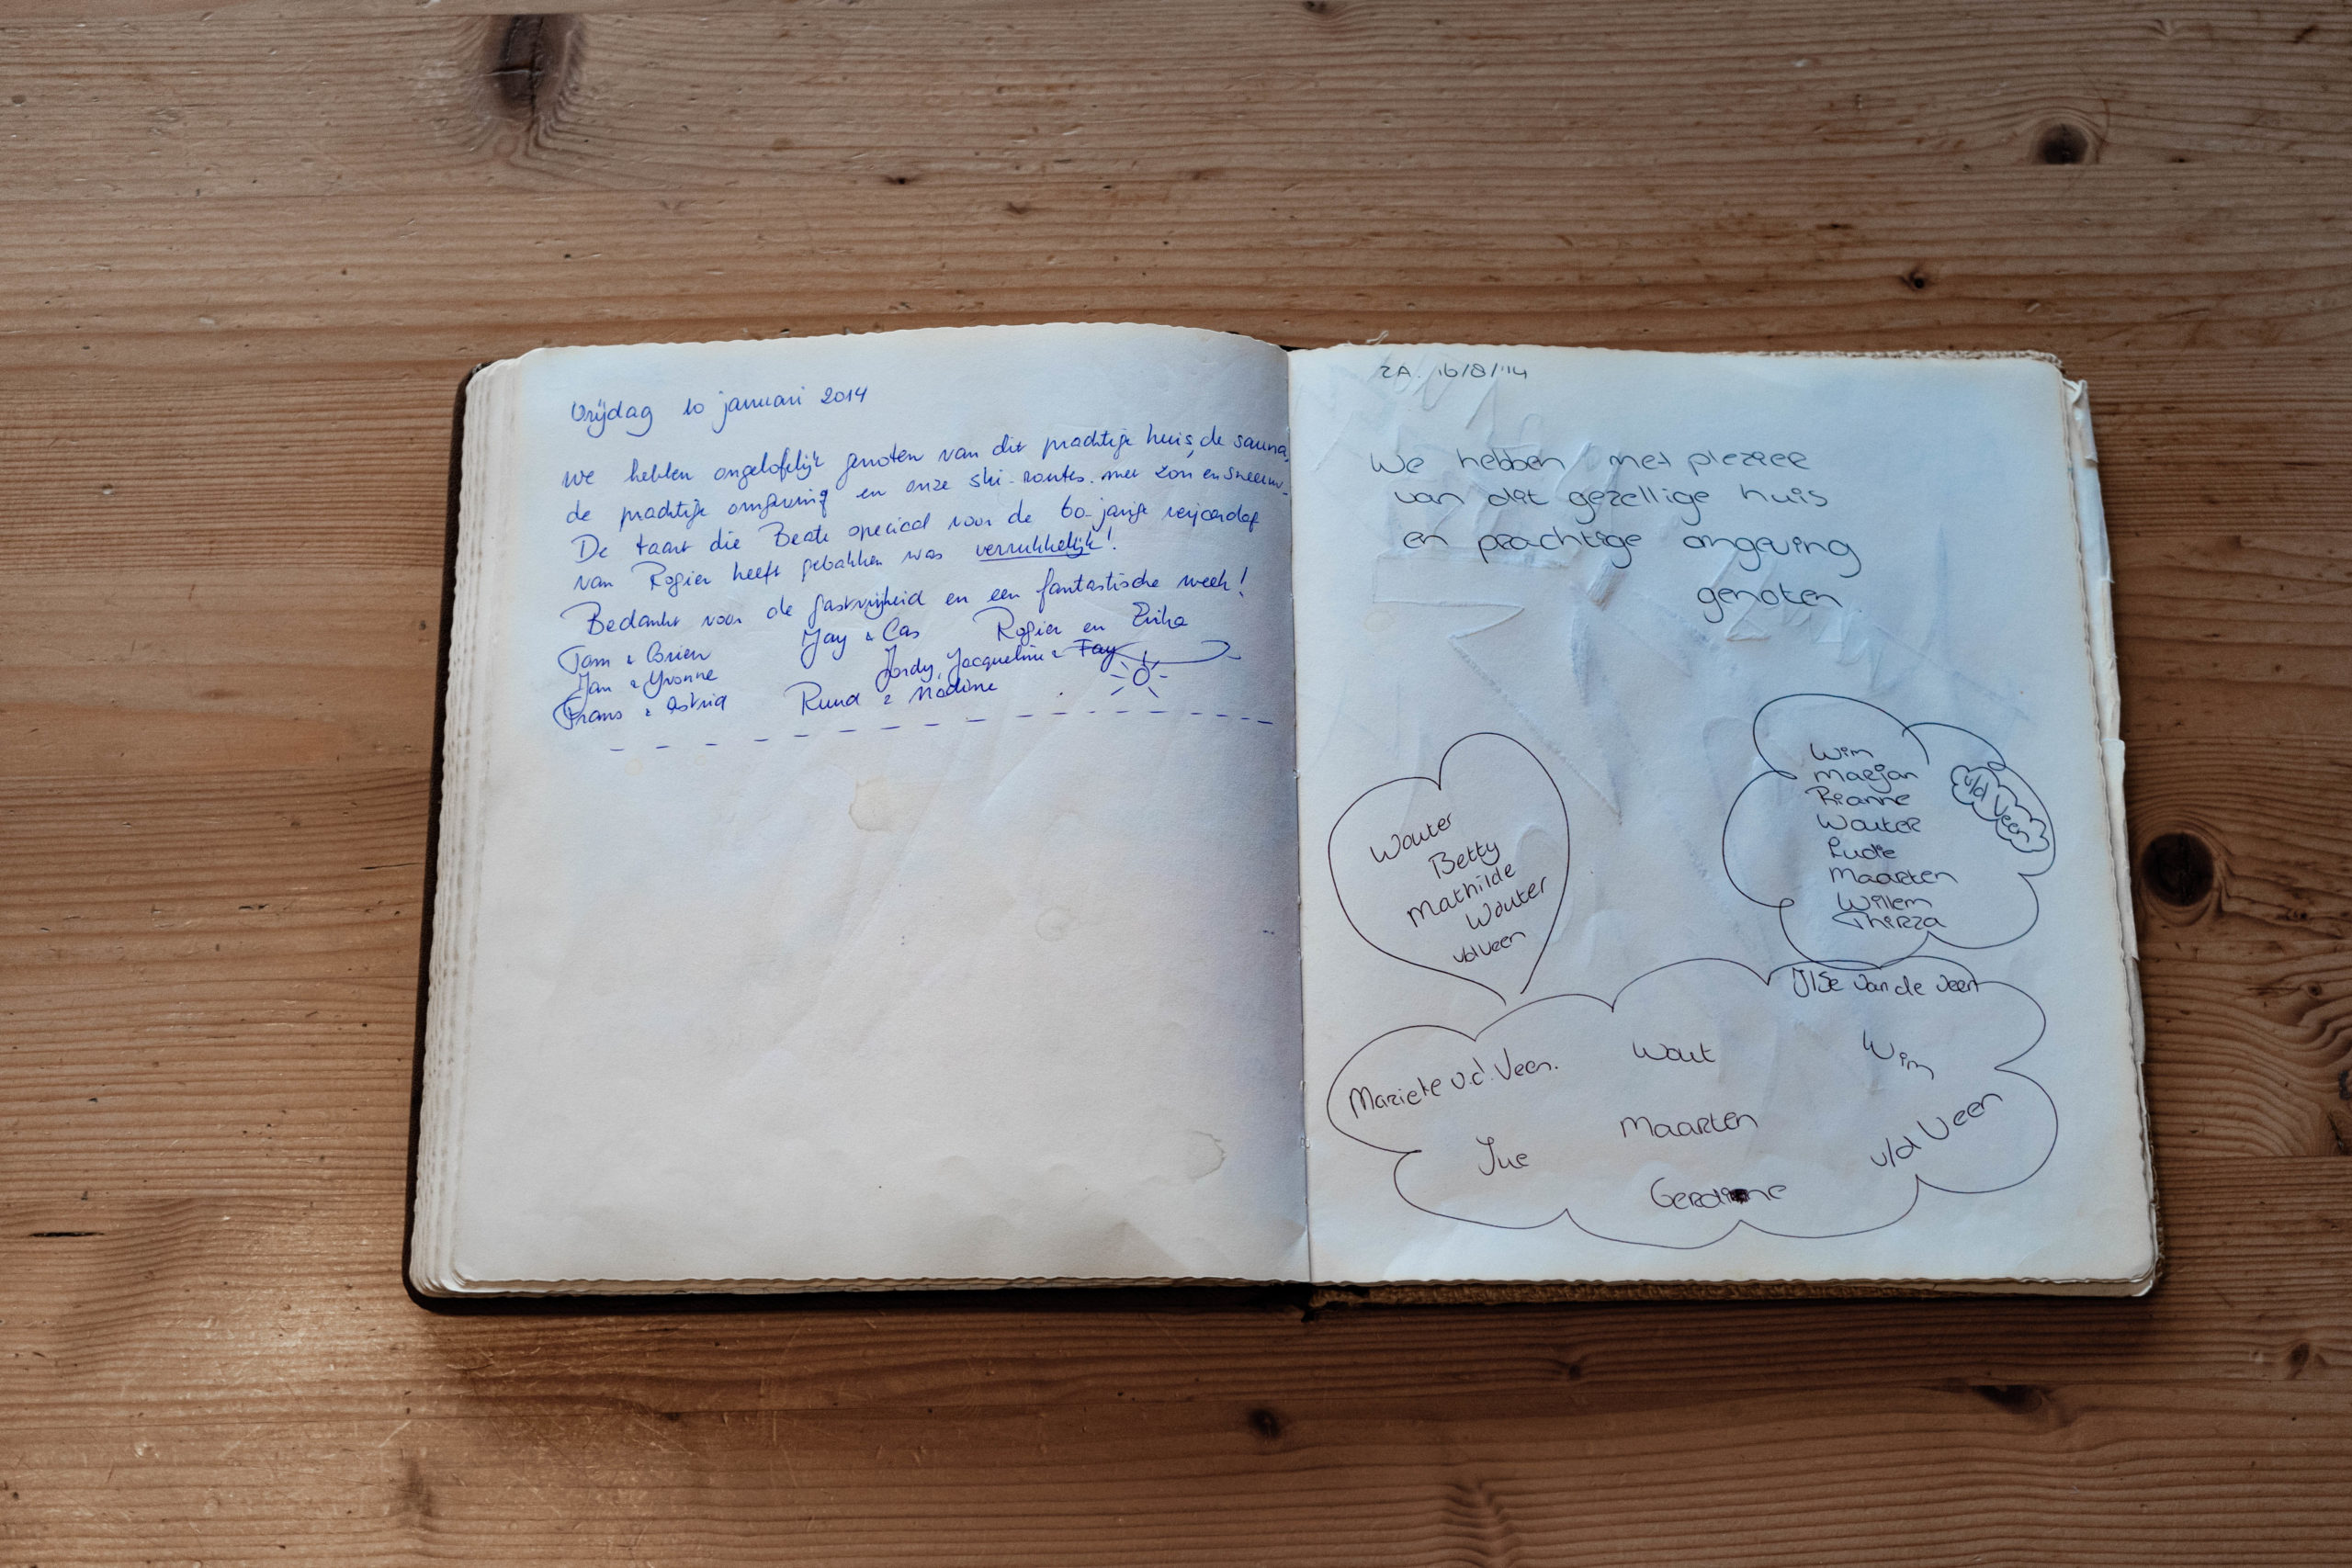 Vrijdag 10 januari 2014
We hebben ongelofelijk genoten van dit prachtige huis, de sauna,
de prachtige omgeving en onze ski-routes met zon en sneeuw.
De taart die Beate speciaal voor de 60-jarige verjaardag
van Rogier heeft gebakken was verrukkelijk!
Bedankt voor de gastvrijheid en een fantastische week!
Tam & Brien Jay & Cas Rogier en Erika
Jan & Yvonne Jordy, Jacqueline & Fay
Frans & Astrid Ruud & Nadine
ZA. 16/8/'14
We hebben met plezier
van dit gezellige huis
en prachtige omgeving
genoten.
Wouter
Betty
Mathilde
Wouter
vd Veen
Wim
Marjan
Rianne
Wouter
Ludie
Maarten
Willem
Thirza
v/d Veen
Ilse van de Veen
Marieke v.d. Veen.
Wout
Wim
Maarten
v/d Veen
Gerdine